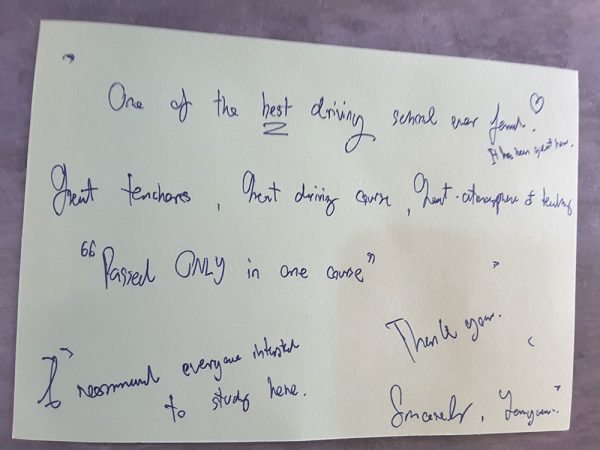 One of the best driving school ever found.
It has been great here.
Great teachers, Great driving course, Great atmosphere &
"Passed ONLY in one course"
I recommend everyone interested
to study here.
Thank you.
Sincerely,